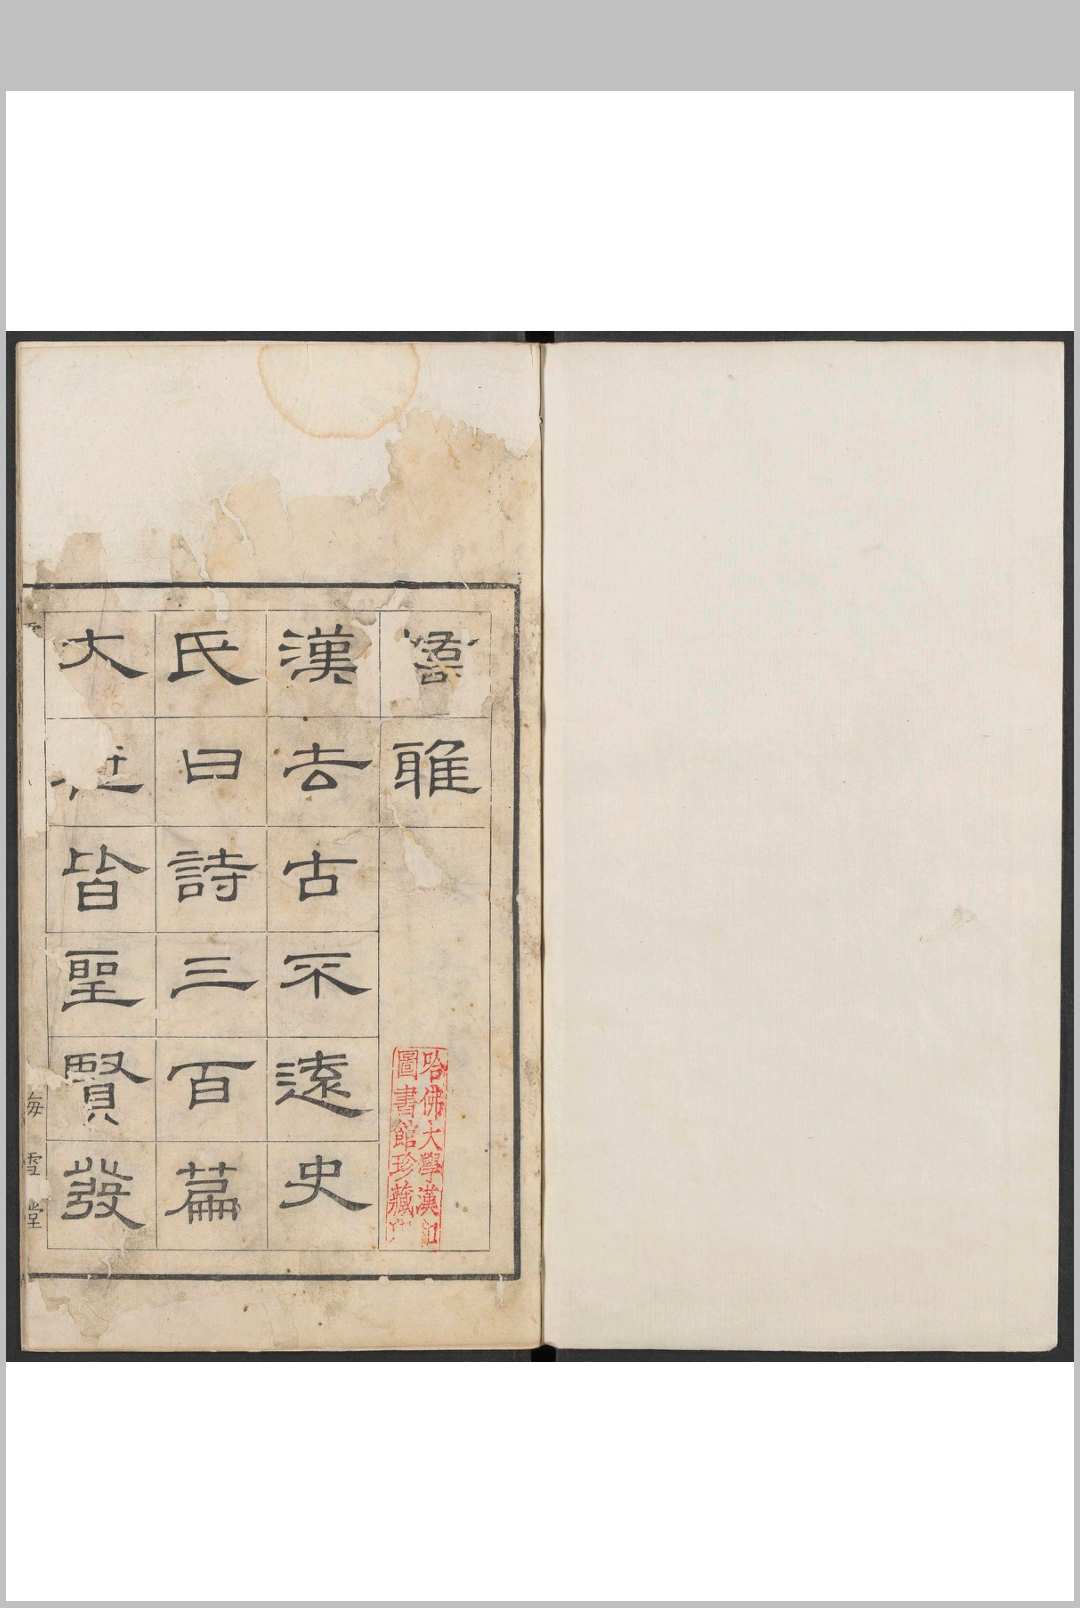 嶠雅
漢去古不遠史
氏曰詩三百篇
大皆聖賢發
海雪堂
哈佛大學漢和
圖書館珍藏印